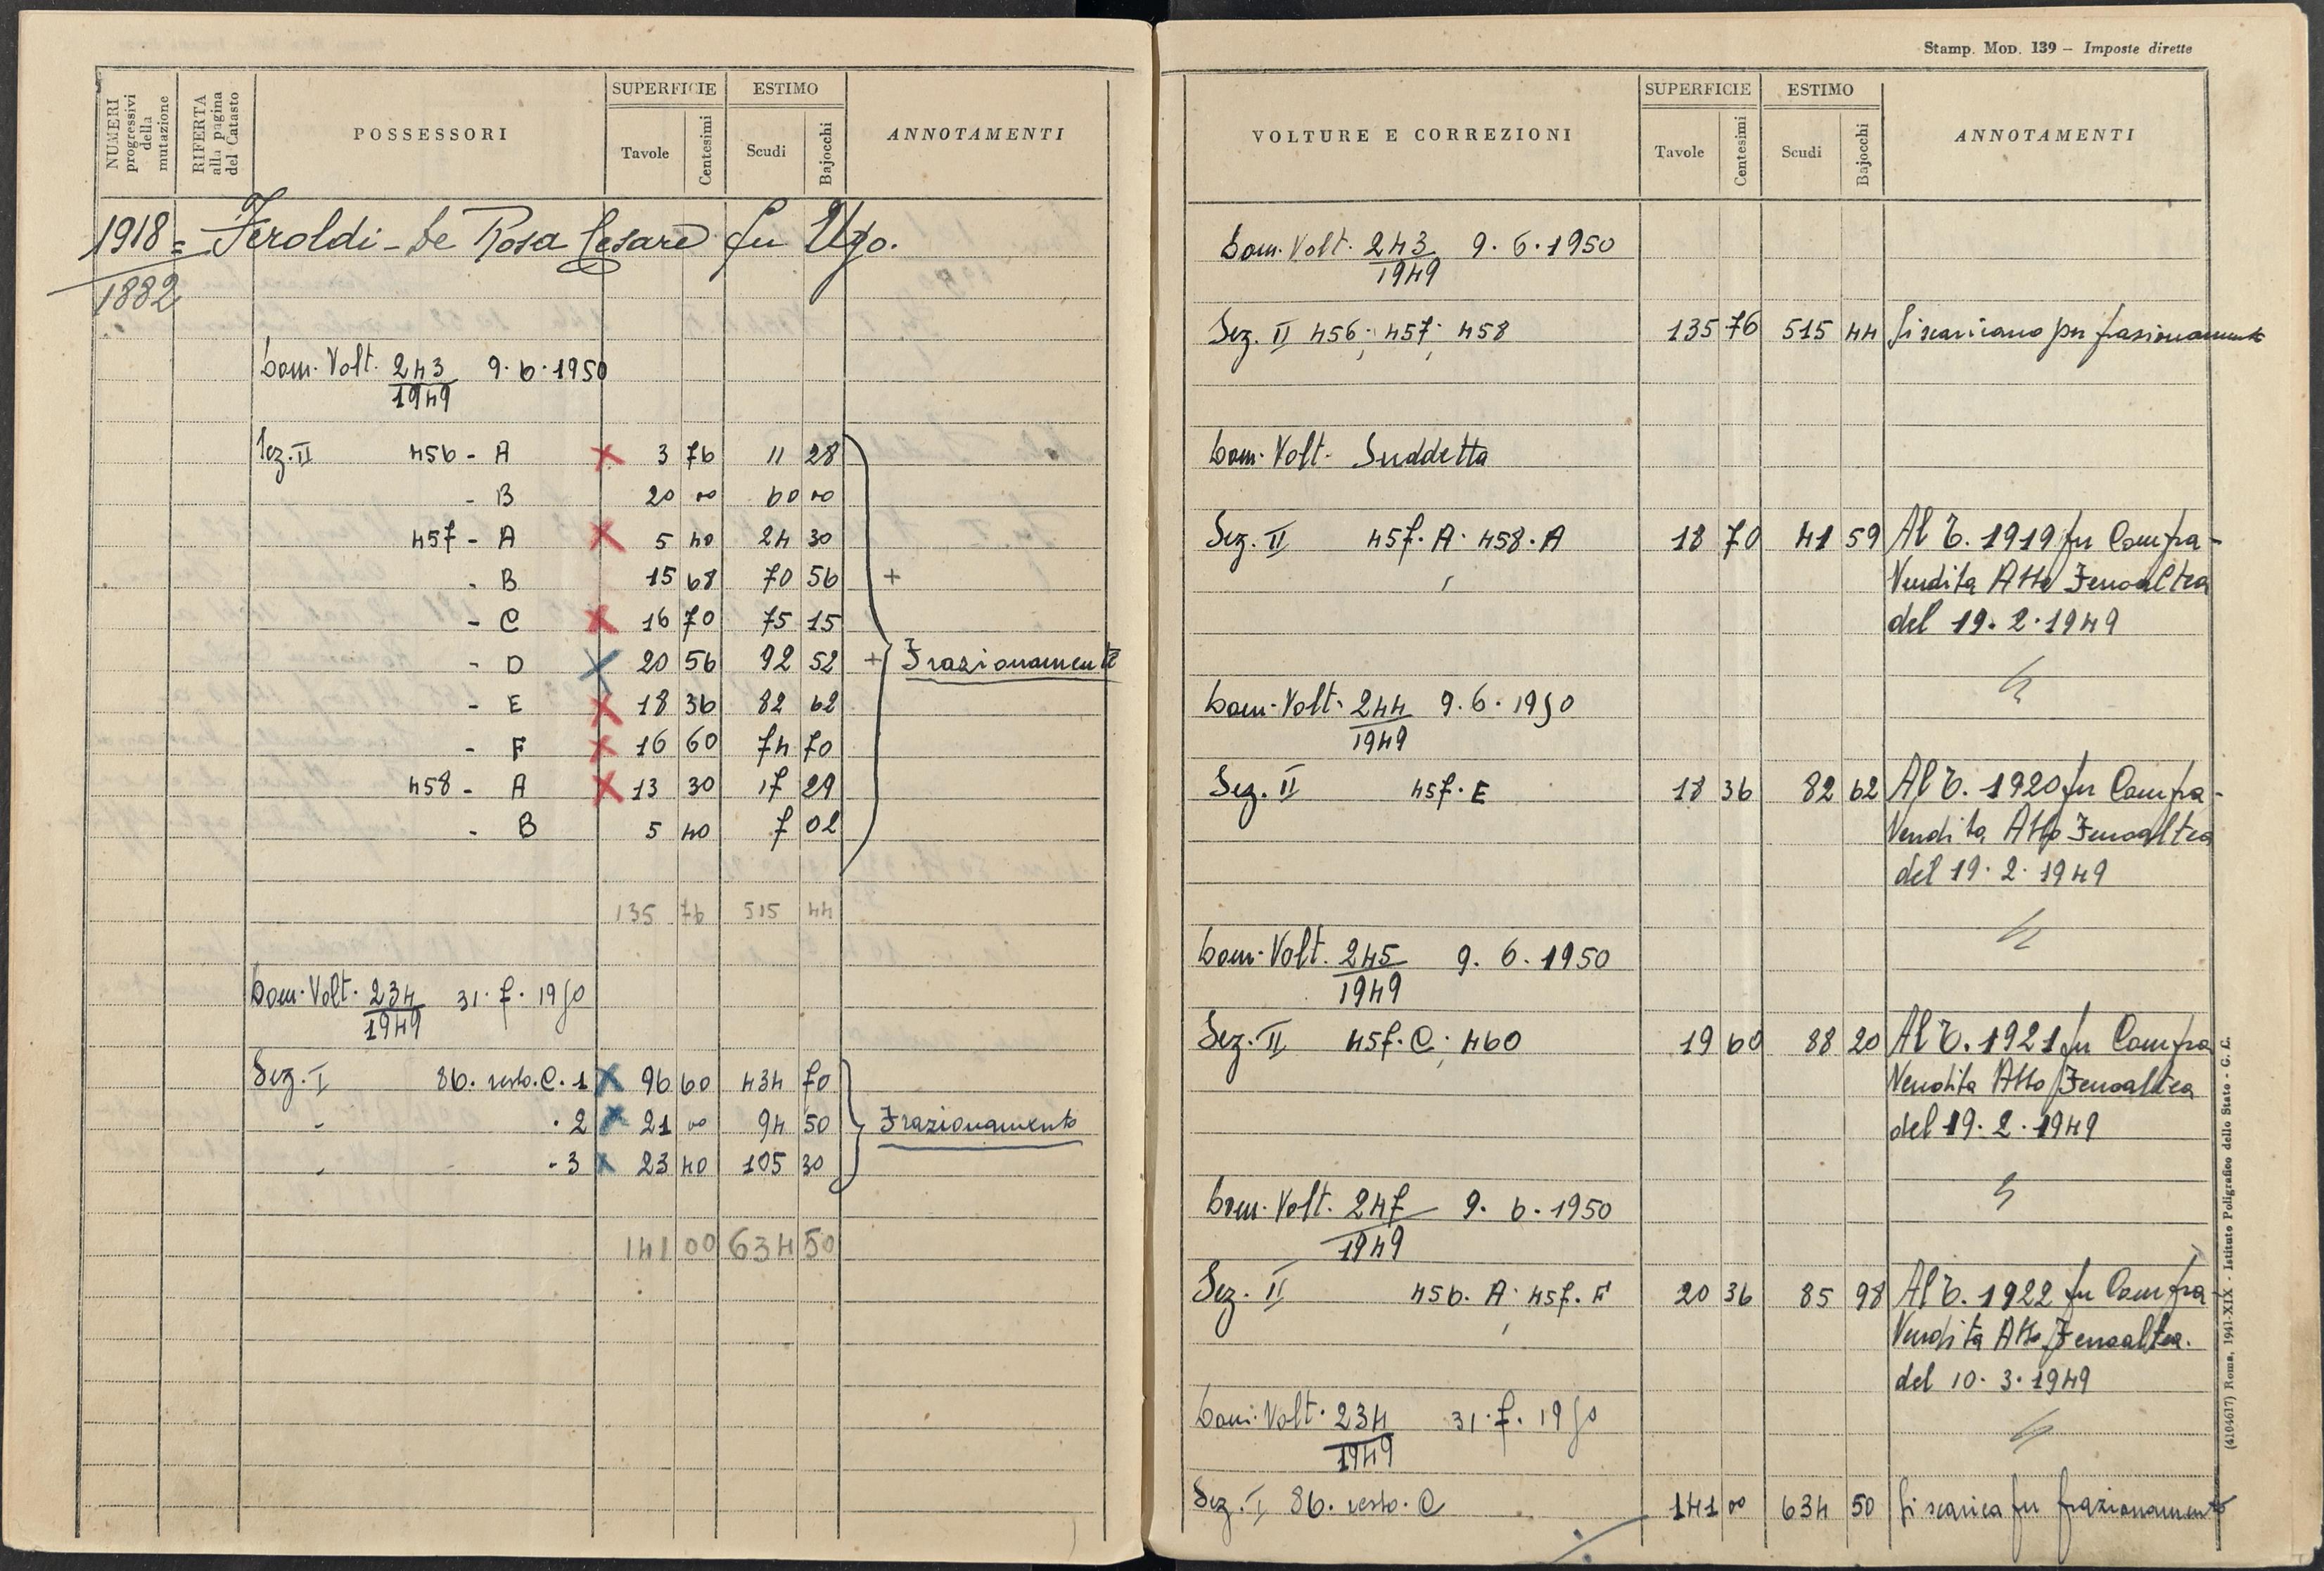 NUMERI progressivi della mutazione
RIFERTA alla pagina del Catasto
POSSESSORI
SUPERFICIE
Tavole
Centesimi
ESTIMO
Scudi
Bajocchi
ANNOTAMENTI
1918 = Feroldi - De Rosa Cesare fu Ugo.
1882
Dom. Volt. 243 9.6.1950
1949
Sez. II 456 - A 3 76 11 28
- B 20 00 60 00
457 - A 5 40 24 30
- B 15 68 70 56 +
- C 16 70 75 15
- D 20 56 92 52 + Frazionamento
- E 18 36 82 62
- F 16 60 74 70
458 - A 13 30 17 29
- B 5 40 7 02
135 76 515 44
Dom. Volt. 234 31.7.1950
1949
Sez. I 86. resto. C. 1 96 60 434 70
. 2 21 00 94 50 Frazionamento
- 3 23 40 105 30
141 00 634 50
Stamp. Mod. 139 – Imposte dirette
VOLTURE E CORREZIONI
SUPERFICIE
Tavole
Centesimi
ESTIMO
Scudi
Bajocchi
ANNOTAMENTI
Dom. Volt. 243 9.6.1950
1949
Sez. II 456, 457, 458 135 76 515 44 Si scaricano per frazionamento
Dom. Volt. Suddetta
Sez. II 457. A, 458. A 18 70 41 59 Al T. 1919 per Compra-
Vendita Atto Fenoaltea
del 19.2.1949
Dom. Volt. 244 9.6.1950
1949
Sez. II 457. E 18 36 82 62 Al T. 1920 per Compra-
Vendita Atto Fenoaltea
del 19.2.1949
Dom. Volt. 245 9.6.1950
1949
Sez. II 457. C, 460 19 60 88 20 Al T. 1921 per Compra
Vendita Atto Fenoaltea
del 19.2.1949
Dom. Volt. 247 9.6.1950
1949
Sez. II 456. A, 457. F 20 36 85 98 Al T. 1922 per Compra-
Vendita Atto Fenoaltea.
del 10.3.1949
Dom. Volt. 234 31.7.1950
1949
Sez. I 86. resto. C 141 00 634 50 Si scarica per frazionamento
(4104617) Roma, 1941-XIX - Istituto Poligrafico dello Stato - G. C.